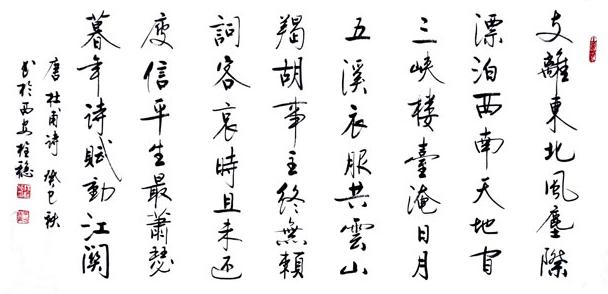 支離東北風塵際
漂泊西南天地间
三峡楼臺淹日月
五溪衣服共雲山
羯胡事主終無賴
詞客哀時且未还
庾信平生最蕭瑟
暮年诗賦動江関
唐杜甫诗癸巳秋
书於西安